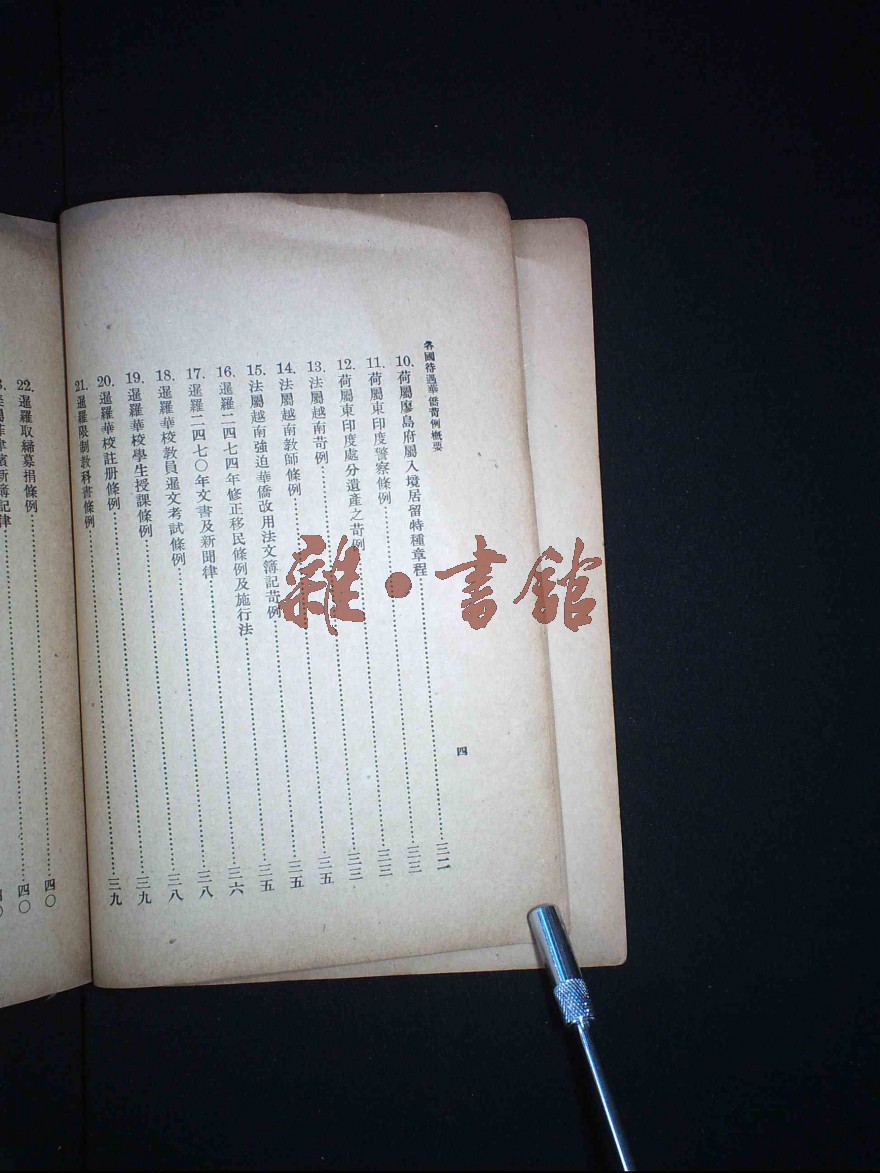 各國待遇華僑苛例概要
四
10.荷屬廖島府屬入境居留特種章程……三二
11.荷屬東印度警察條例……三三
12.荷屬東印度處分遺產之苛例……三三
13.法屬越南苛例……三三
14.法屬越南教師條例……三五
15.法屬越南強迫華僑改用法文簿記苛例……三五
16.暹羅二四七四年修正移民條例及施行法……三五
17.暹羅二四七〇年文書及新聞律……三六
18.暹羅華校教員暹文考試條例……三八
19.暹羅華校學生授課條例……三八
20.暹羅華校註册條例……三九
21.暹羅限制教科書條例……三九
22.暹羅取締募捐條例……四〇
律濱新簿記律……四〇
雜·書館